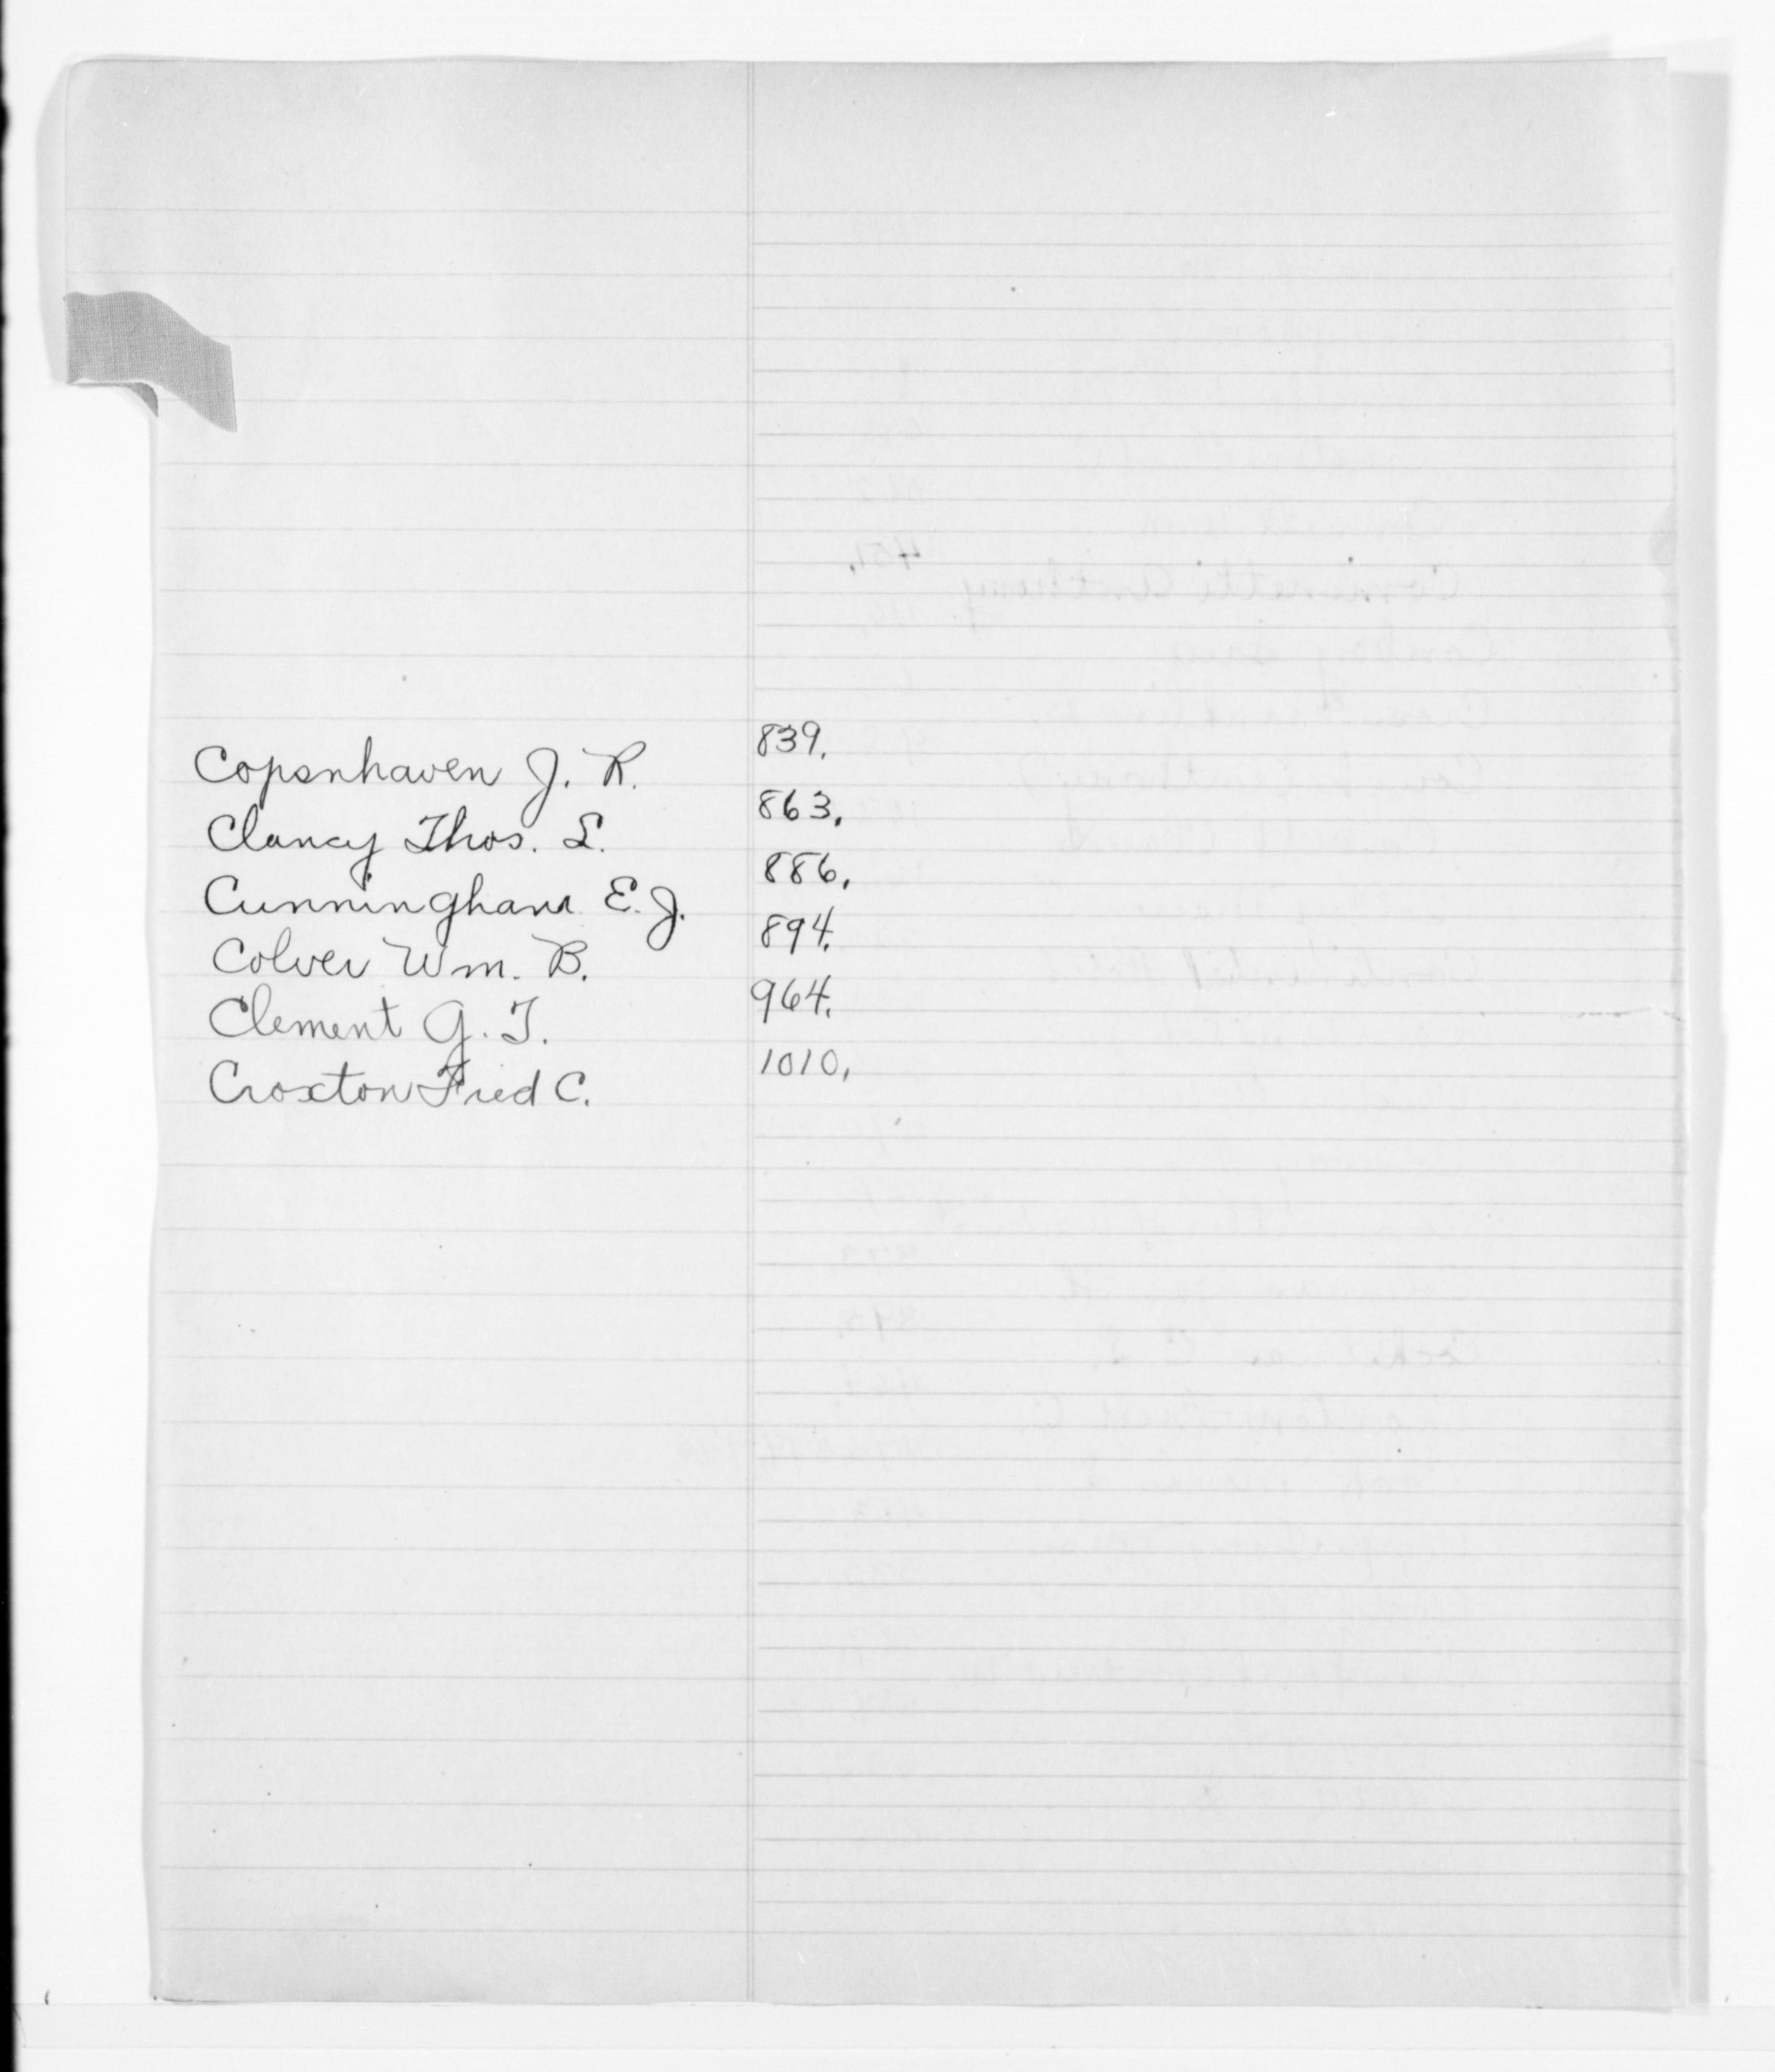 Copenhaven J. R. 839.
Clancy Thos. L. 863.
Cunningham E. J. 886.
Colver Wm. B. 894.
Clement G. T. 964.
Croxton Fred C. 1010.